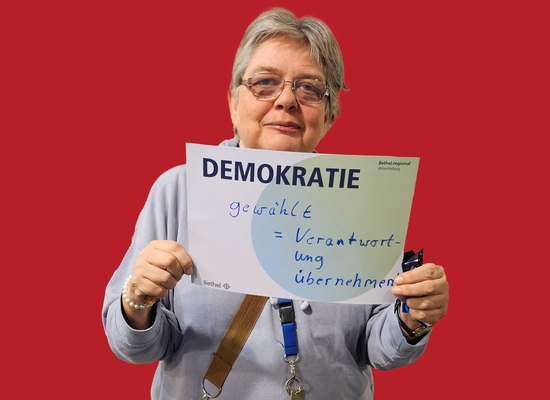 DEMOKRATIE
Bethel.regional
gewählt
= Verantwort-
ung
übernehmen
Bethel